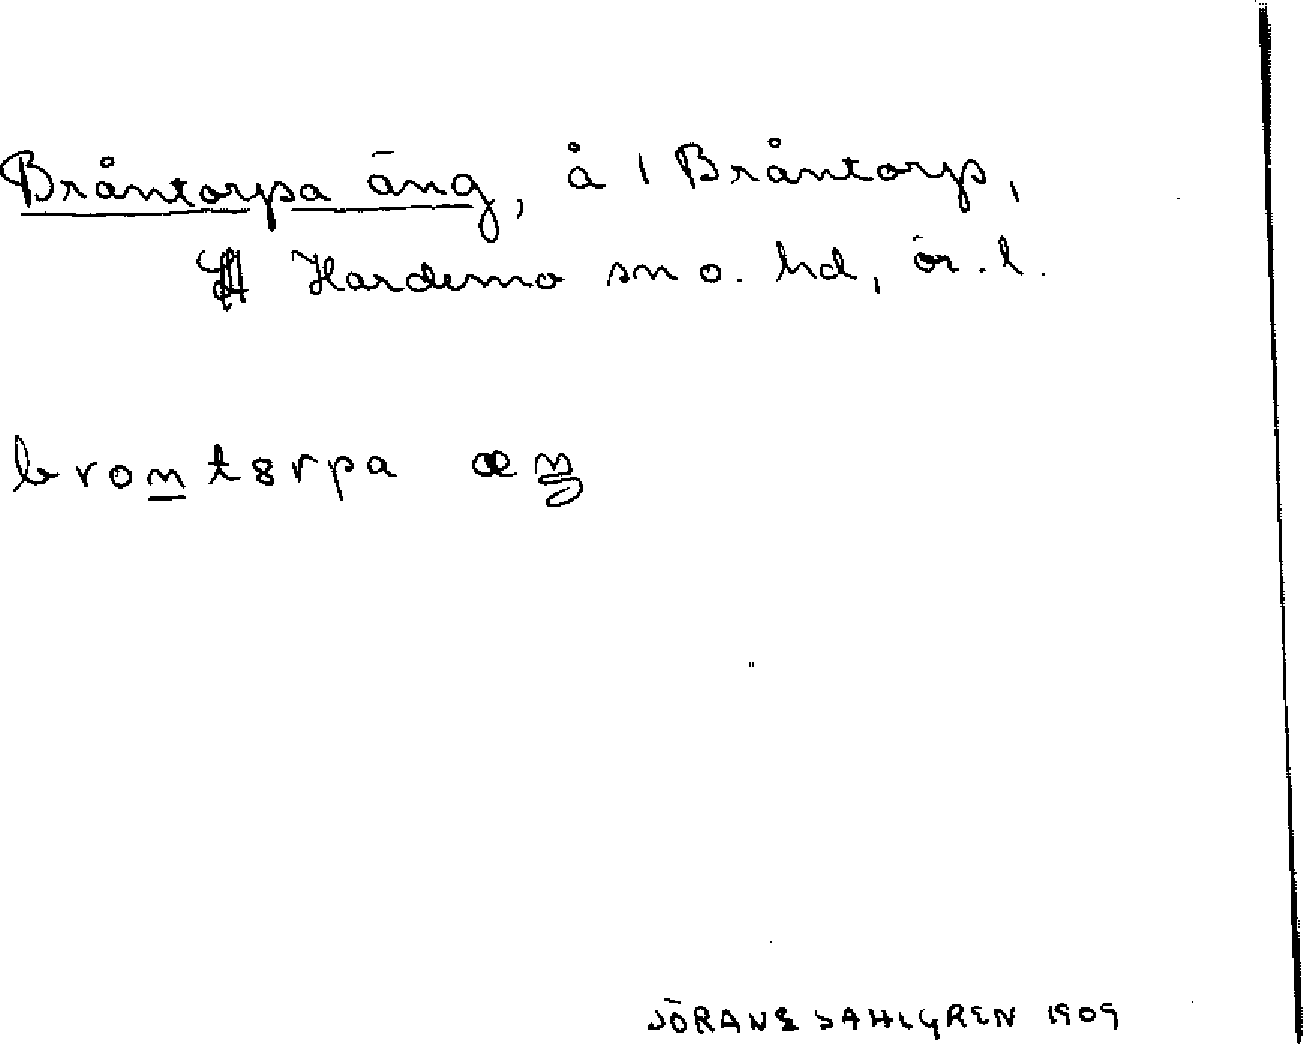 Bråntorpa äng, å 1 Bråntorp,
Hardemo sn o. hd, ör. l.
brontɞrpa æŋ
JÖRAN SAHLGREN 1909